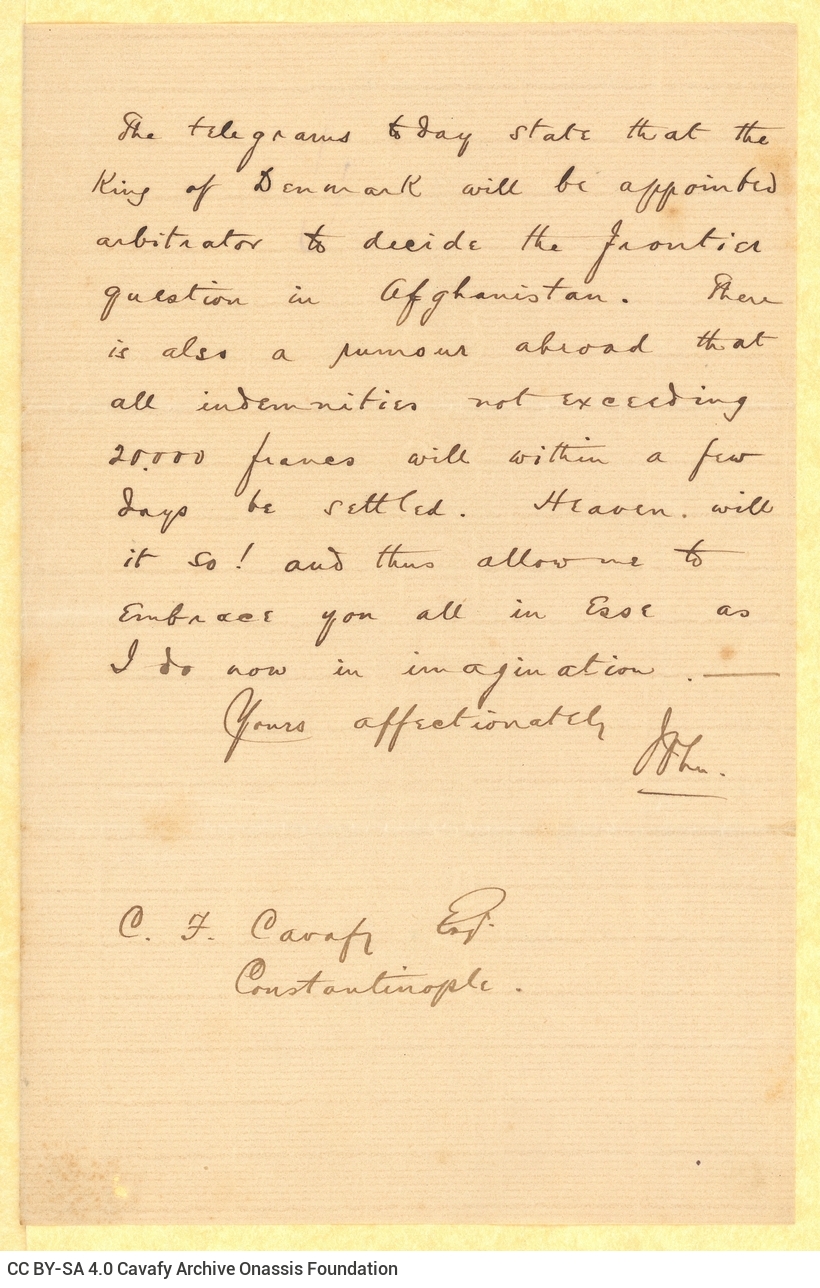 The telegrams to day state that the
King of Denmark will be appointed
arbitrator to decide the frontier
question in Afghanistan. There
is also a rumour abroad that
all indemnities not exceeding
20.000 francs will within a few
days be settled. Heaven will
it so! and thus allow me to
embrace you all in Esse as
I do now in imagination. —
Yours affectionately
John.
C. F. Cavafy Esqr.
Constantinople.
CC BY-SA 4.0 Cavafy Archive Onassis Foundation